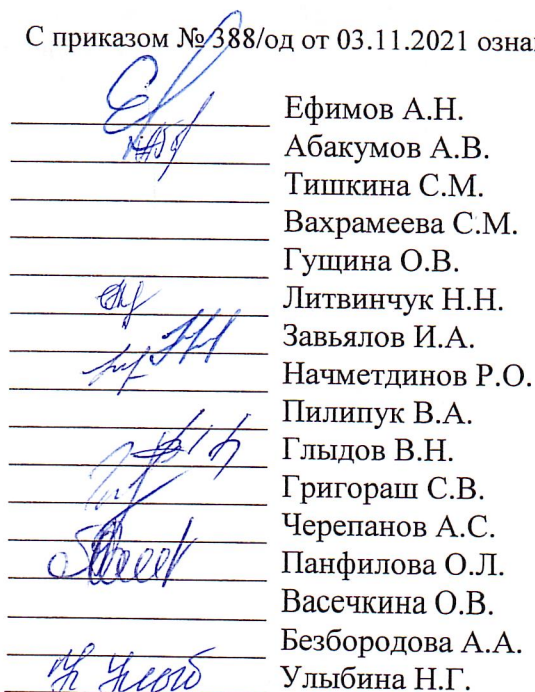 С приказом № 388/од от 03.11.2021 озна
Ефимов А.Н.
Абакумов А.В.
Тишкина С.М.
Вахрамеева С.М.
Гущина О.В.
Литвинчук Н.Н.
Завьялов И.А.
Начметдинов Р.О.
Пилипук В.А.
Глыдов В.Н.
Григораш С.В.
Черепанов А.С.
Панфилова О.Л.
Васечкина О.В.
Безбородова А.А.
Улыбина Н.Г.